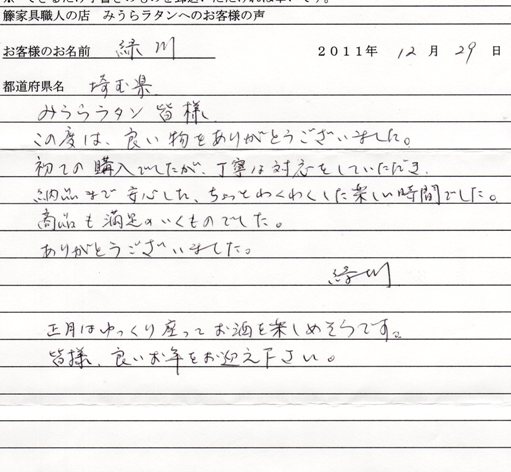 籐家具職人の店 みうらラタンへのお客様の声
お客様のお名前 緑川 2011年 12月 29日
都道府県名 埼玉県
みうらラタン 皆様
この度は、良い物をありがとうございました。
初ての購入でしたが、丁寧な対応をしていただき、
納品まで安心した、ちょっとわくわくした楽しい時間でした。
商品も満足のいくものでした。
ありがとうございました。
緑川
正月はゆっくり座ってお酒を楽しめそうです。
皆様、良いお年をお迎え下さい。